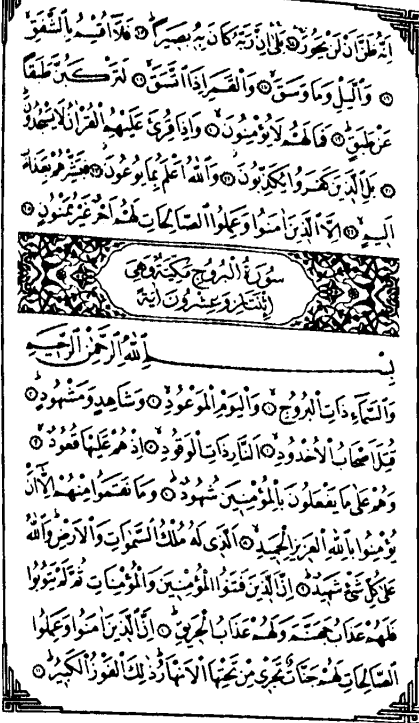 اِنَّهُ ظَنَّ اَنْ لَنْ يَحُورَۚ ﴿١٤﴾ بَلٰىۚ اِنَّ رَبَّهُ كَانَ بِهٖ بَصٖيرًاۜ ﴿١٥﴾ فَلَٓا اُقْسِمُ بِالشَّفَقِۙ
﴿١٦﴾ وَالَّيْلِ وَمَا وَسَقَۙ ﴿١٧﴾ وَالْقَمَرِ اِذَا اتَّسَقَۙ ﴿١٨﴾ لَتَرْكَبُنَّ طَبَقًا
عَنْ طَبَقٍۜ ﴿١٩﴾ فَمَا لَهُمْ لَا يُؤْمِنُونَۙ ﴿٢٠﴾ وَاِذَا قُرِئَ عَلَيْهِمُ الْقُرْاٰنُ لَا يَسْجُدُونَ
﴿٢١﴾ بَلِ الَّذٖينَ كَفَرُوا يُكَذِّبُونَۘ ﴿٢٢﴾ وَاللّٰهُ اَعْلَمُ بِمَا يُوعُونَۘ ﴿٢٣﴾ فَبَشِّرْهُمْ بِعَذَابٍ
اَلٖيمٍۙ ﴿٢٤﴾ اِلَّا الَّذٖينَ اٰمَنُوا وَعَمِلُوا الصَّالِحَاتِ لَهُمْ اَجْرٌ غَيْرُ مَمْنُونٍ ﴿٢٥﴾
سُورَةُ الْبُرُوجِ مَكِّيَّةٌ وَهِيَ
اِثْنَتَانِ وَعِشْرُونَ اٰيَةً
بِسْمِ اللّٰهِ الرَّحْمٰنِ الرَّحٖيمِ
وَالسَّمَٓاءِ ذَاتِ الْبُرُوجِۙ ﴿١﴾ وَالْيَوْمِ الْمَوْعُودِۙ ﴿٢﴾ وَشَاهِدٍ وَمَشْهُودٍۜ ﴿٣﴾
قُتِلَ اَصْحَابُ الْاُخْدُودِۙ ﴿٤﴾ اَلنَّارِ ذَاتِ الْوَقُودِۙ ﴿٥﴾ اِذْ هُمْ عَلَيْهَا قُعُودٌۙ ﴿٦﴾
وَهُمْ عَلٰى مَا يَفْعَلُونَ بِالْمُؤْمِنٖينَ شُهُودٌۜ ﴿٧﴾ وَمَا نَقَمُوا مِنْهُمْ اِلَّٓا اَنْ
يُؤْمِنُوا بِاللّٰهِ الْعَزٖيزِ الْحَمٖيدِۙ ﴿٨﴾ اَلَّذٖي لَهُ مُلْكُ السَّمٰوَاتِ وَالْاَرْضِۜ وَاللّٰهُ
عَلٰى كُلِّ شَيْءٍ شَهٖيدٌۜ ﴿٩﴾ اِنَّ الَّذٖينَ فَتَنُوا الْمُؤْمِنٖينَ وَالْمُؤْمِنَاتِ ثُمَّ لَمْ يَتُوبُوا
فَلَهُمْ عَذَابُ جَهَنَّمَ وَلَهُمْ عَذَابُ الْحَرٖيقِۜ ﴿١٠﴾ اِنَّ الَّذٖينَ اٰمَنُوا وَعَمِلُوا
الصَّالِحَاتِ لَهُمْ جَنَّاتٌ تَجْرٖي مِنْ تَحْتِهَا الْاَنْهَارُۜ ذٰلِكَ الْفَوْزُ الْكَبٖيرُۜ ﴿١١﴾